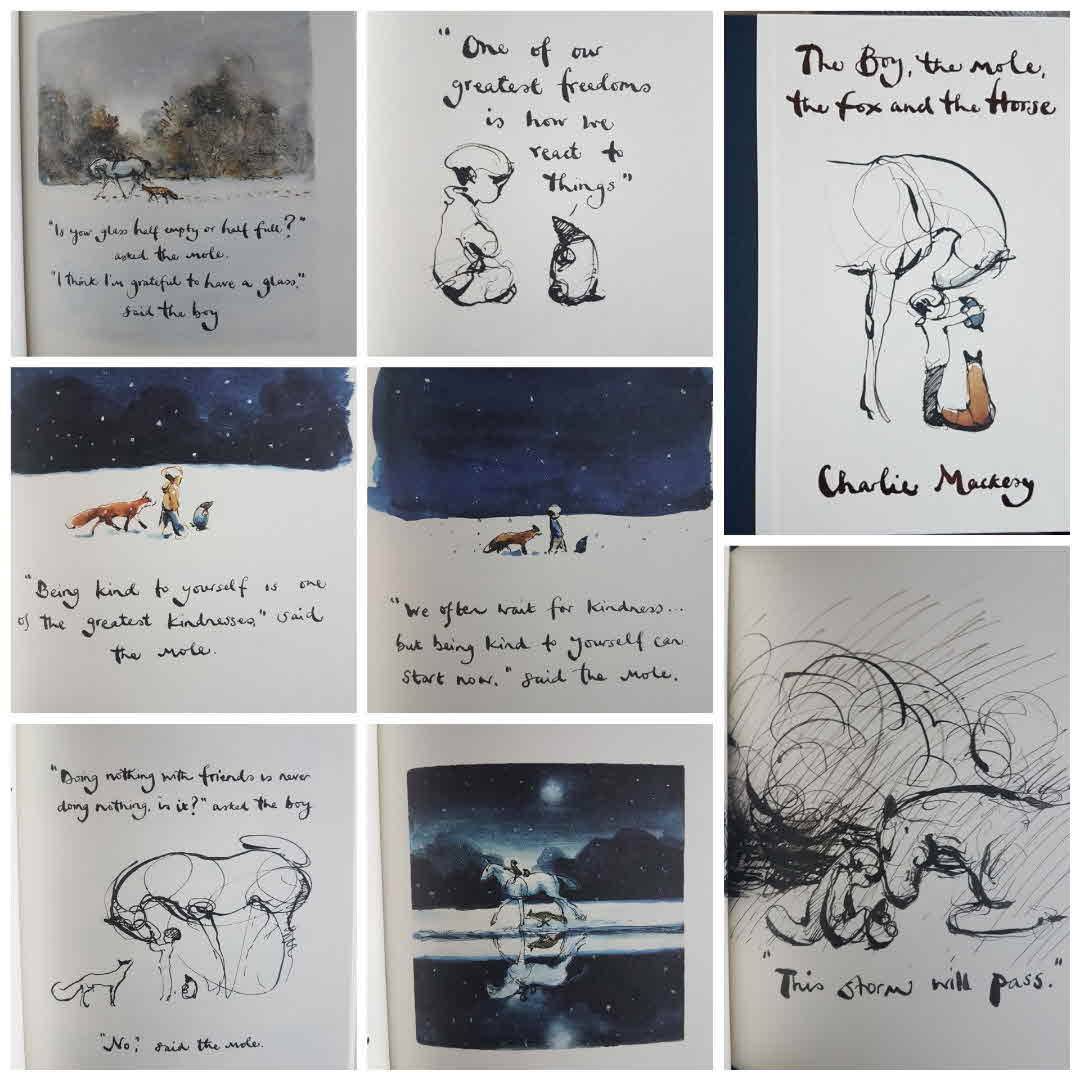 "Is your glass half empty or half full?"
asked the mole.
"I think I'm grateful to have a glass,"
said the boy
"One of our
greatest freedoms
is how we
react to
things"
The Boy, the mole,
the fox and the Horse
Charlie Mackesy
"Being kind to yourself is one
of the greatest kindnesses," said
the mole.
"We often wait for kindness...
but being kind to yourself can
start now." said the mole.
"Doing nothing with friends is never
doing nothing, is it?" asked the boy
"No," said the mole.
"This storm will pass."